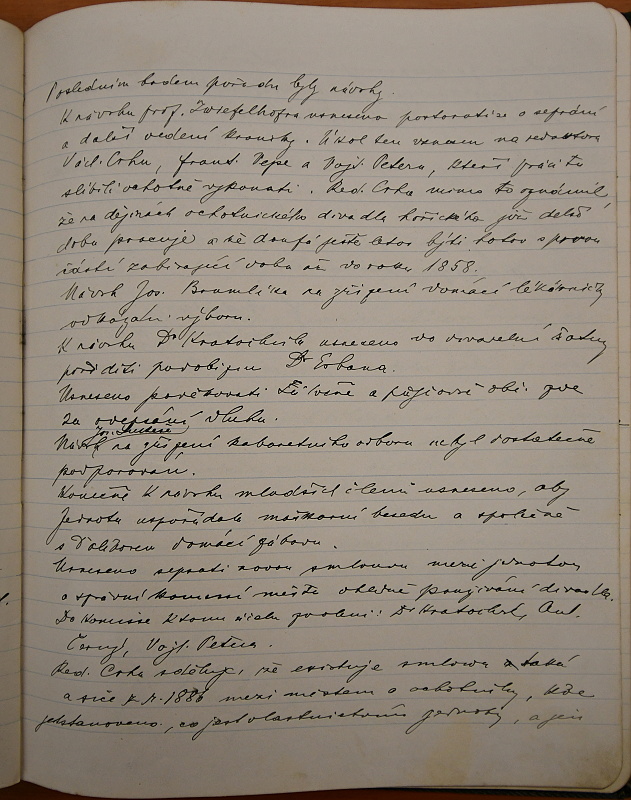 Posledním bodem pořadu byly návrhy.
K návrhu prof. Zwiefelhofra usneseno postarati se o sepsání
a další vedení kroniky. Úkol ten vznesen na redaktora
Václ. Crhu, Frant. Vepe a Vojt. Petera, kteří práci tu
slíbili ochotně vykonati. Red. Crha mimo to oznámil,
že na dějinách ochotnického divadla hořického již delší
dobu pracuje a že doufá ještě letos býti hotov s prvou
částí zabírající dobu až do roku 1858.
Návrh Jos. Brumlíka na zřízení domácí lékárničky
odkázán výboru.
K návrhu Dr Kratochvíla usneseno do divadelní šatny
poříditi podobiznu Dr Erbena.
Usneseno poděkovati a obč.
za odepsání dluhu.
Jos.
Návrh na zřízení kabaretního odboru nebyl dostatečně
podporován.
Konečně k návrhu mladších členů usneseno, aby
Jednota uspořádala maškarní besedu a společně
s Daliborem domácí zábavu.
Usneseno sepsati novou smlouvu mezi jednotou
a správní komisí města ohledně používání divadla.
Do komise k tomu účelu zvoleni: Dr Kratochvíl, Ant.
Černý, Vojt. Petera.
Red. Crha sděluje, že existuje smlouva taká
a sice z r. 1886 mezi městem a ochotníky, kde
jest stanoveno, co jest vlastnictvím jednoty, a jen